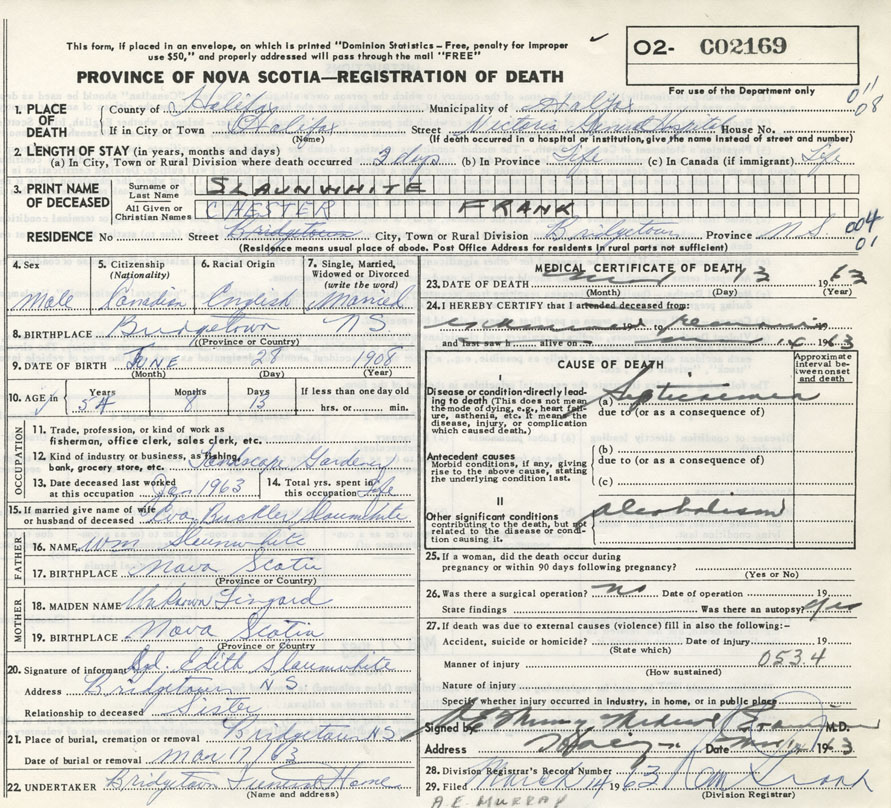 This form, if placed in an envelope, on which is printed "Dominion Statistics - Free, penalty for improper
use $50," and properly addressed will pass through the mail "FREE"
O2- C02169
PROVINCE OF NOVA SCOTIA—REGISTRATION OF DEATH
For use of the Department only
011
08
1. PLACE OF DEATH County of Halifax Municipality of Halifax
If in City or Town Halifax Street Victoria General Hospital House No.
(Name) (If death occurred in a hospital or institution, give the name instead of street and number)
2. LENGTH OF STAY (in years, months and days)
(a) In City, Town or Rural Division where death occurred 2 days (b) In Province Life (c) In Canada (if immigrant) Life
3. PRINT NAME OF DECEASED Surname or Last Name SLAUNWHITE
All Given or Christian Names CHESTER FRANK
RESIDENCE No Street Bridgetown City, Town or Rural Division Bridgetown Province N.S. 004
01
(Residence means usual place of abode. Post Office Address for residents in rural parts not sufficient)
4. Sex 5. Citizenship (Nationality) 6. Racial Origin 7. Single, Married, Widowed or Divorced (write the word)
Male Canadian English Married
8. BIRTHPLACE Bridgetown NS
(Province or Country)
9. DATE OF BIRTH JUNE 28 1908
(Month) (Day) (Year)
10. AGE in Years Months Days If less than one day old
54 8 13 hrs. or min.
OCCUPATION
11. Trade, profession, or kind of work as
fisherman, office clerk, sales clerk, etc.
12. Kind of industry or business, as fishing,
bank, grocery store, etc. Landscape Gardener
13. Date deceased last worked 14. Total yrs. spent in
at this occupation Jan 1963 this occupation Life
15. If married give name of wife
or husband of deceased Buckler Slaunwhite
FATHER
16. NAME Wm Slaunwhite
17. BIRTHPLACE Nova Scotia
(Province or Country)
MOTHER
18. MAIDEN NAME Unknown
19. BIRTHPLACE Nova Scotia
(Province or Country)
20. Signature of informant Edith Slaunwhite
Address Bridgetown NS
Relationship to deceased Sister
21. Place of burial, cremation or removal Bridgetown NS
Date of burial or removal Mar 17/63
22. UNDERTAKER Bridgetown Funeral Home
(Name and address)
MEDICAL CERTIFICATE OF DEATH
23. DATE OF DEATH 13 1963
(Month) (Day) (Year)
24. I HEREBY CERTIFY that I attended deceased from:
examined 19 to remains 19
and last saw h alive on 14 1963
CAUSE OF DEATH
Approximate interval between onset and death
I
Disease or condition-directly leading to death (This does not mean the mode of dying, e.g., heart failure, asthenia, etc. It means the disease, injury, or complication which caused death.)
(a) Septicaemia
due to (or as a consequence of)
Antecedent causes
Morbid conditions, if any, giving rise to the above cause, stating the underlying condition last.
(b)
due to (or as a consequence of)
(c)
II
Other significant conditions
contributing to the death, but not related to the disease or condition causing it.
alcoholism
25. If a woman, did the death occur during
pregnancy or within 90 days following pregnancy?
(Yes or No)
26. Was there a surgical operation? no Date of operation 19
State findings Was there an autopsy? yes
27. If death was due to external causes (violence) fill in also the following:-
Accident, suicide or homicide? Date of injury 19
(State which)
Manner of injury 053.4
(How sustained)
Nature of injury
Specify whether injury occurred in industry, in home, or in public place
Signed by Murray Medical M.D.
Address Date 14 1963
28. Division Registrar's Record Number
29. Filed March 14 1963
(Division Registrar)
A.E. MURRAY